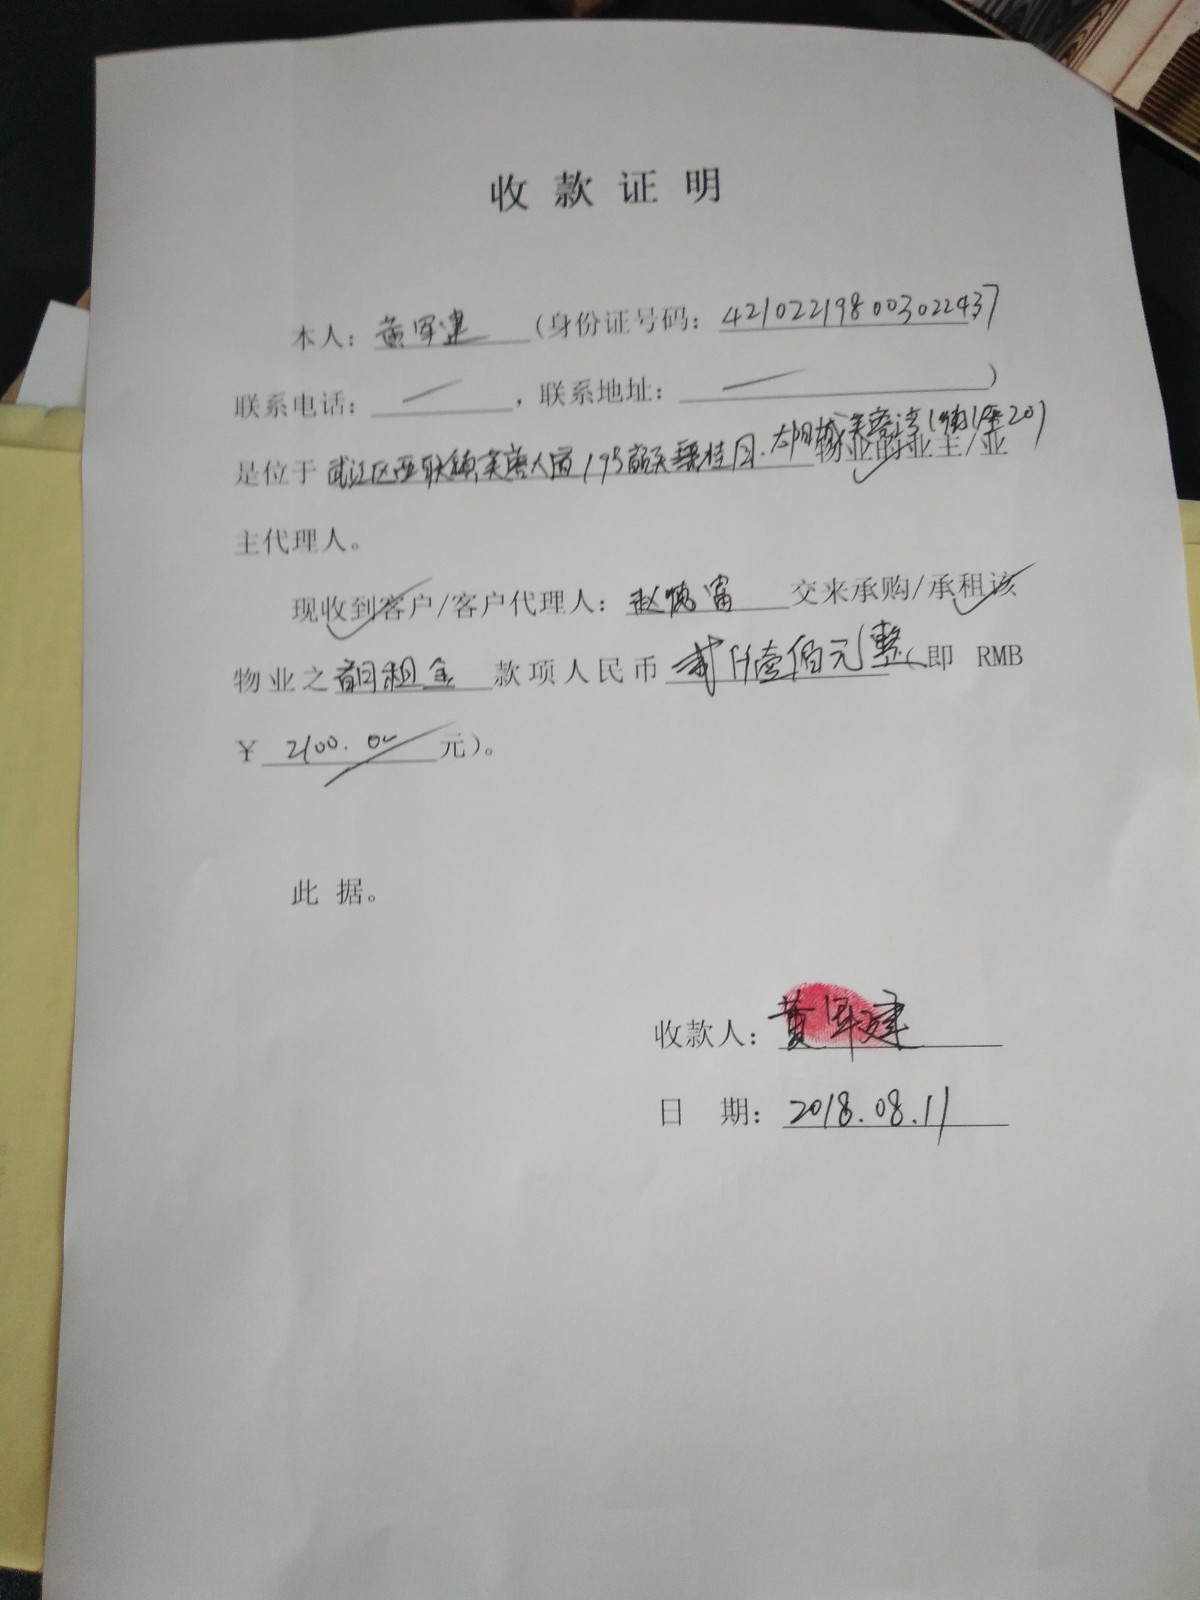 收款证明
本人：黄军建（身份证号码：421022198003022437
联系电话：，联系地址：）
是位于武江区西联镇芙蓉大道195号碧桂园·太阳城芙蓉湾1街1座201物业的业主/业
主代理人。
现收到客户/客户代理人：赵德富 交来承购/承租该
物业之首月租金 款项人民币 贰仟壹佰元整（即 RMB
￥2100.00元）。
此据。
收款人：黄军建
日 期：2018.08.11